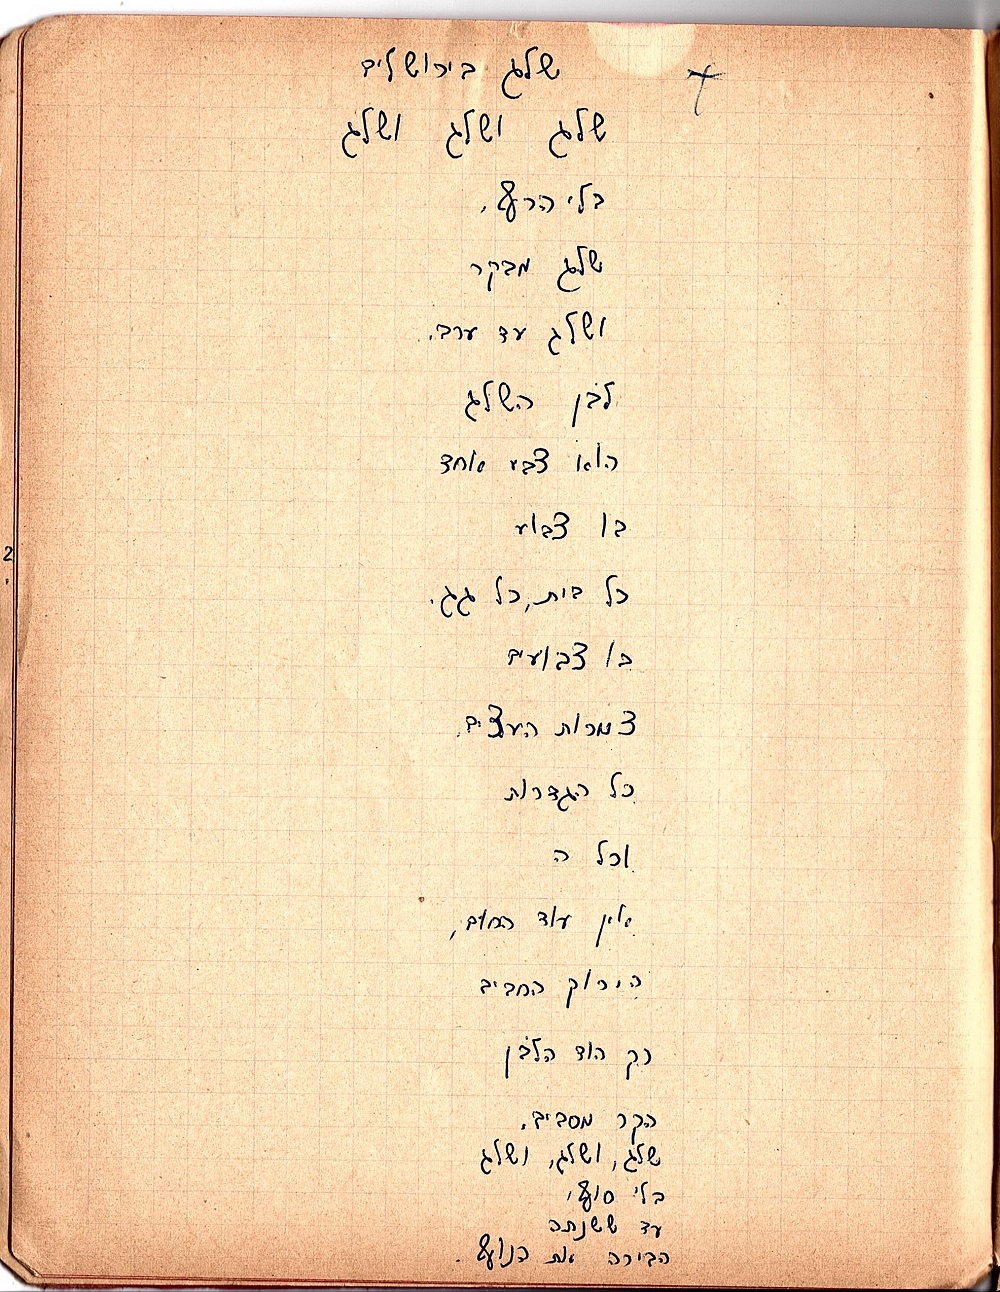 שלג בירושלים
שלג ושלג ושלג
בלי הרף,
שלג מבקר
ושלג עד ערב.
לבן השלג
הוא צבע אחד
בו צבוע
כל בית, כל גג.
בו צבועים
צמרות העצים
כל הגדרות
וכל ה
אין עוד החום,
הירוק החביב
רק הוד הלבן
הקר מסביב.
שלג, ושלג, ושלג
בלי סוף,
עד ששנתה
הבירה את הנוף.
2